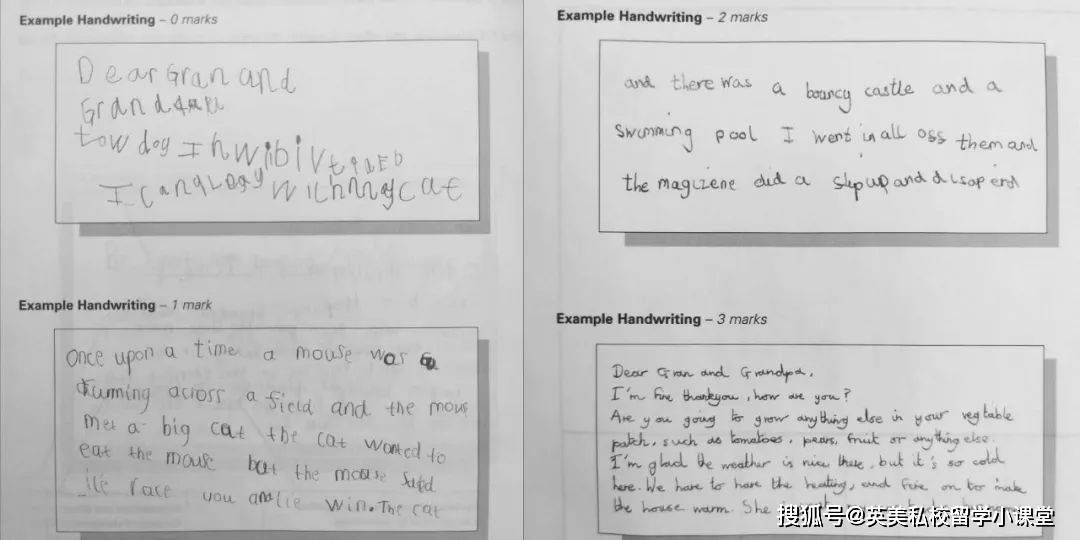 Example Handwriting – 0 marks
Dear Gran and
tow dog I
I can
cat
Example Handwriting – 1 mark
Once upon a time a mouse was
across a field and the mous
met a big cat the cat wanted to
eat the mouse but the mouse
race you win. The cat
Example Handwriting – 2 marks
and there was a bouncy castle and a
swimming pool I went in all oss them and
the magizene did a slep up and
Example Handwriting – 3 marks
Dear Gran and Grandpa,
I'm fine thankyou, how are you?
Are you going to grow anything else in your vegtable
patch, such as tomatoes, pears, fruit or anything else.
I'm glad the weather is nice there, but it's so cold
here. We have to have the heating, and fire on to make
the house warm. She
搜狐号@英美私校留学小课堂